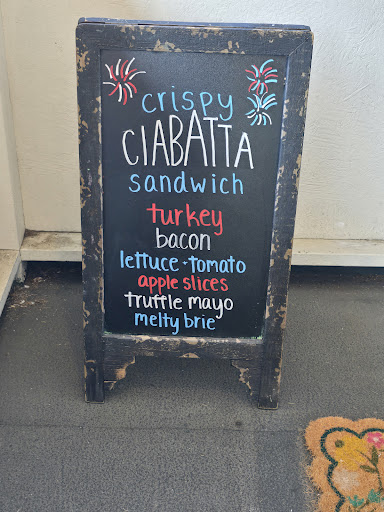 crispy
CIABATTA
sandwich
turkey
bacon
lettuce + tomato
apple slices
truffle mayo
melty brie